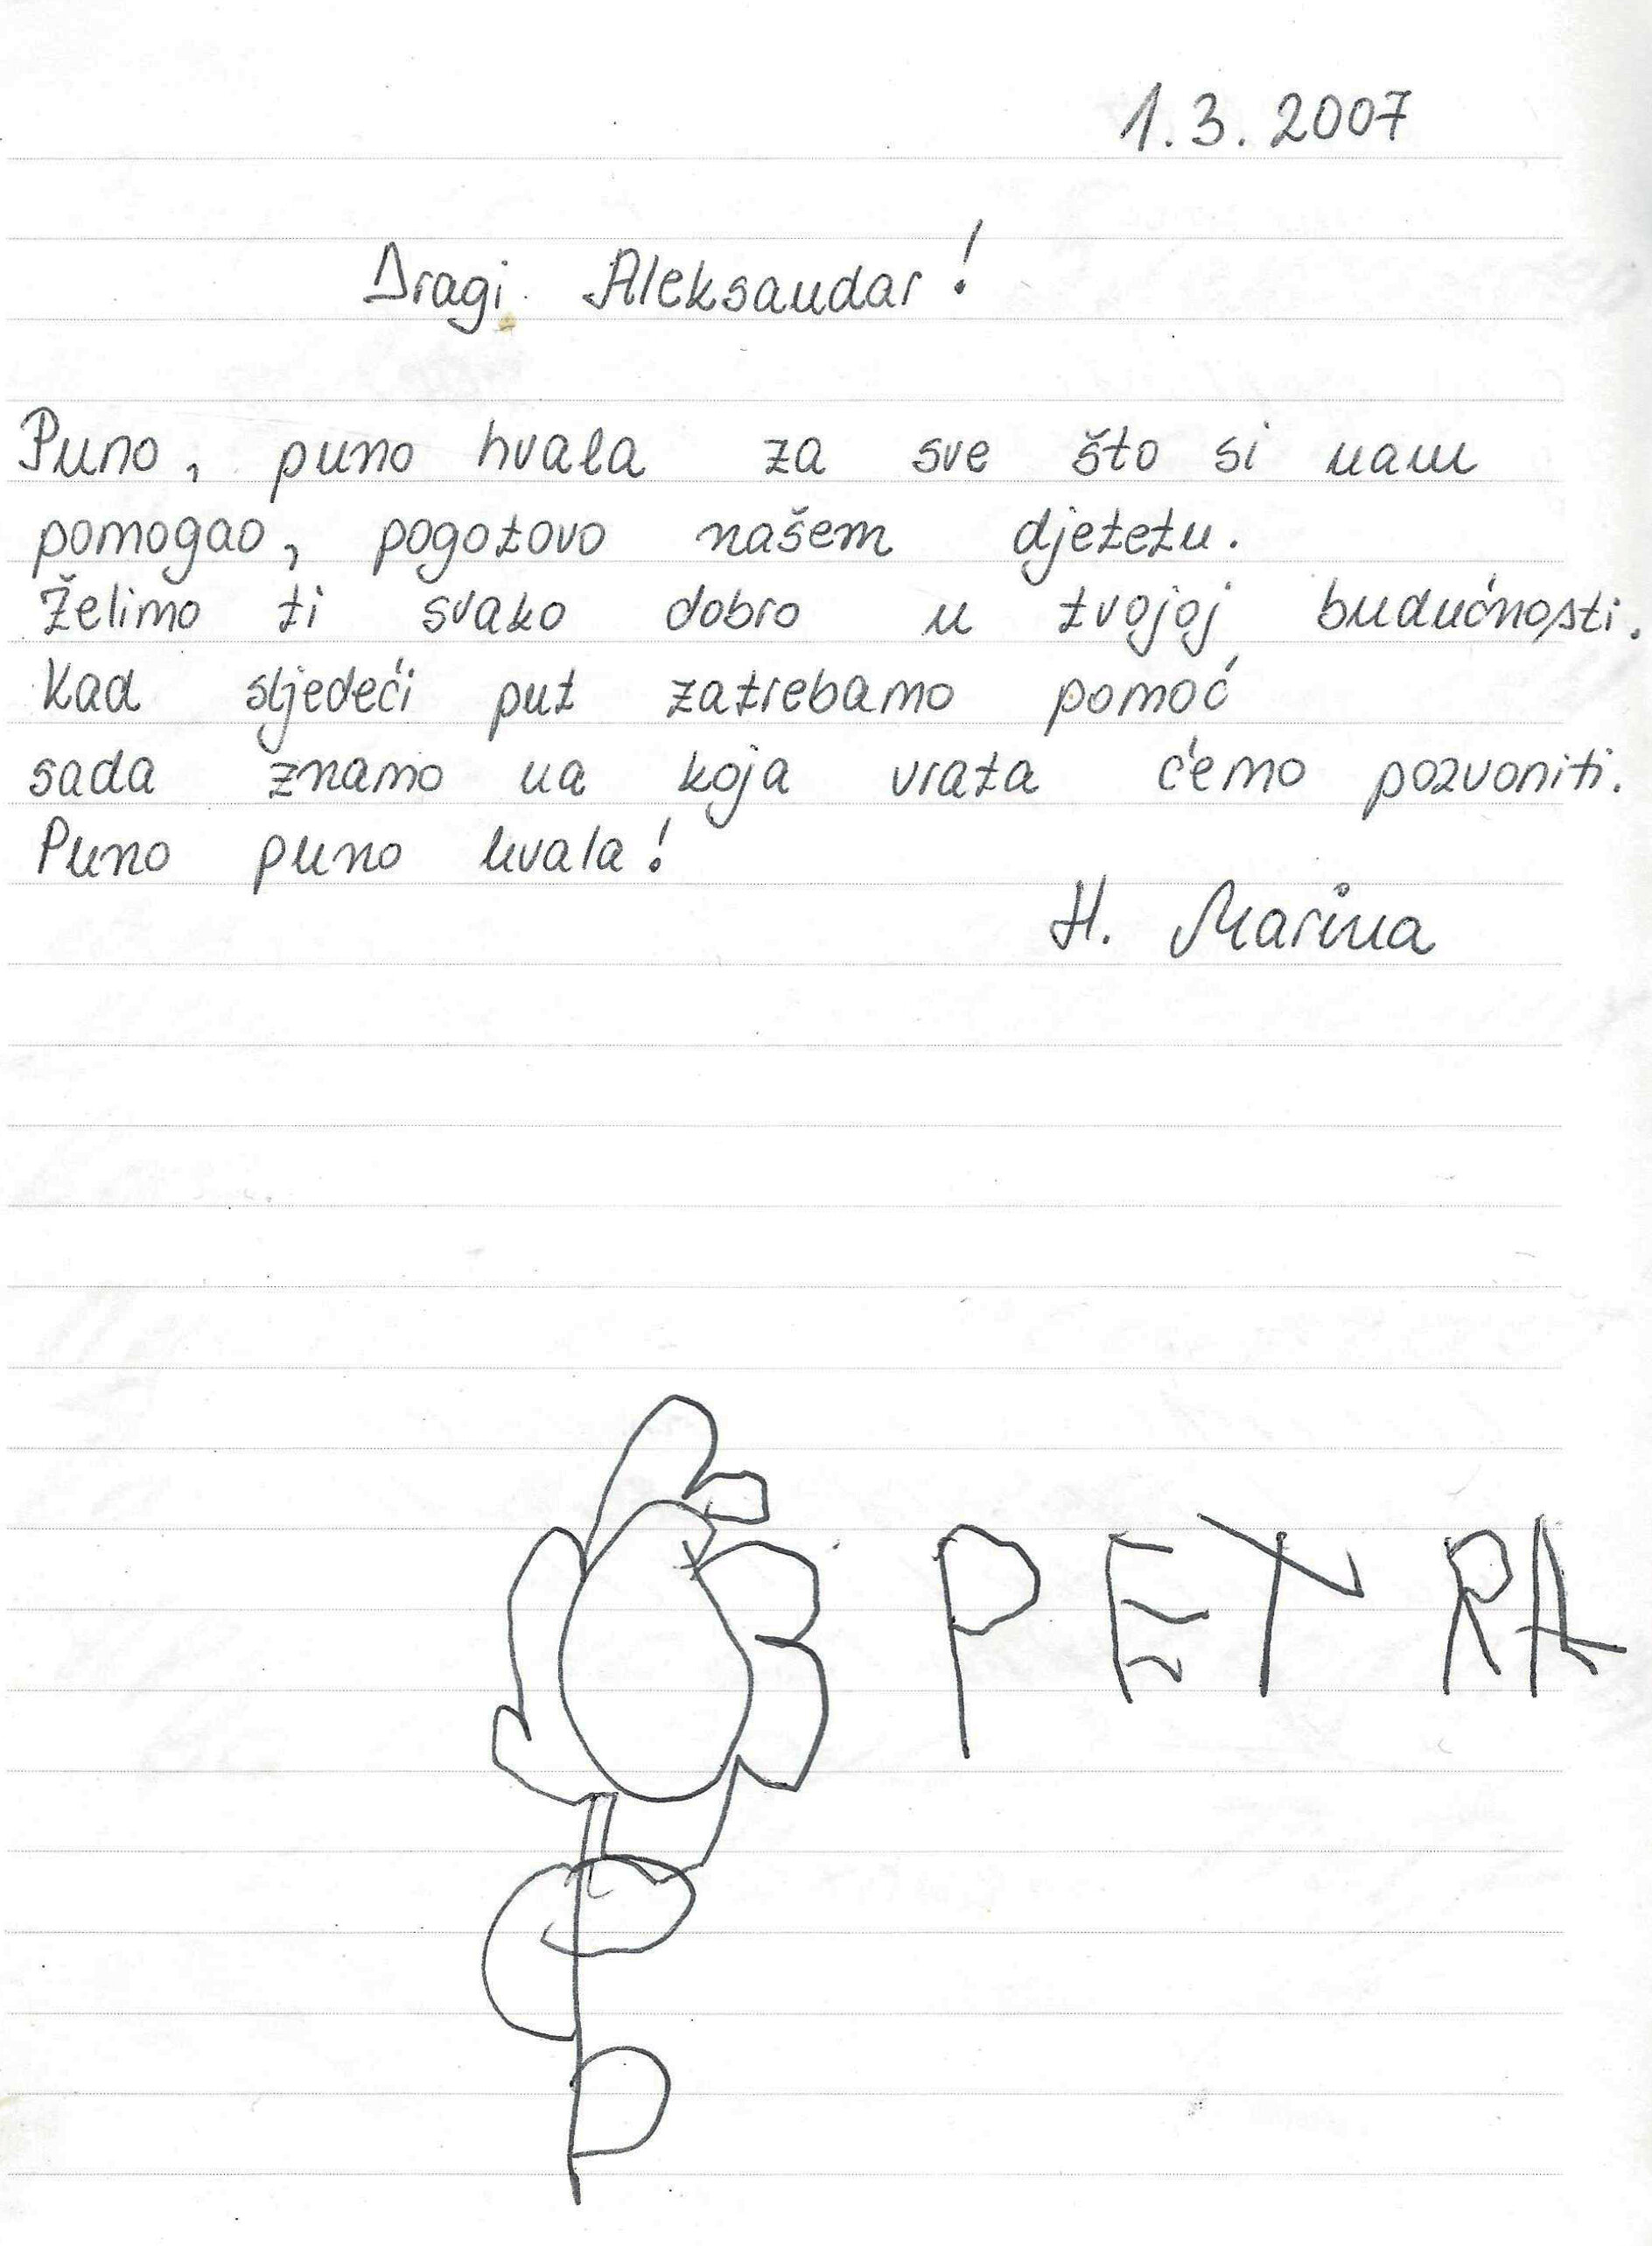 1.3.2007
Dragi Aleksandar!
Puno, puno hvala za sve što si nam
pomogao, pogotovo našem djetetu.
Želimo ti svako dobro u tvojoj budućnosti.
Kad sljedeći put zatrebamo pomoć
sada znamo na koja vrata ćemo pozvoniti.
Puno puno hvala!
H. Marina
PETRA